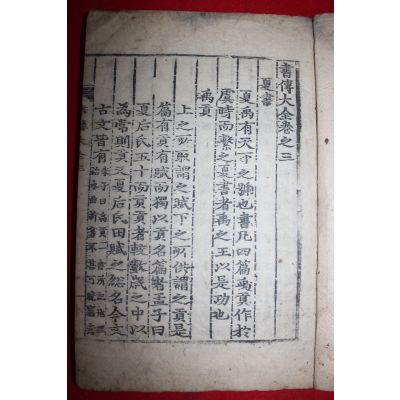 書傳大全卷之三
夏書
夏禹有天下之號也書凡四篇禹貢作於
虞時而繫之夏書者禹之王以是功也
禹貢
上之所取謂之賦下之所供謂之貢是
篇有貢有賦而獨以貢名篇者孟子曰
夏后氏五十而貢貢者較數歲之中以
為常則貢又夏后氏田賦之總名今文
古文皆有